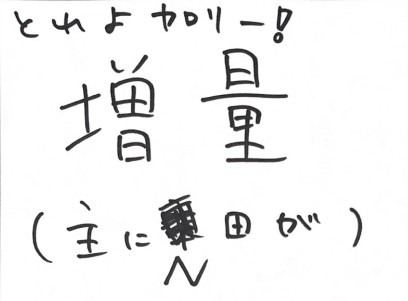 とれよカロリー!
増量
(主にN田が)